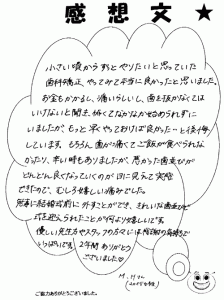 感想文 ★
小さい頃からずっとやりたいと思っていた
歯科矯正、やってみて本当に良かったと思いました。
お金もかかるし、痛いらしいし、歯を抜かなくては
いけないと聞き、怖くてなかなか始められずに
いましたが、もっと早くやっておけば良かった…と後悔
しています。もちろん歯が痛くてご飯が食べられな
かったり、辛い時もありましたが、悪かった歯並びが
どんどん良くなっていくのが目に見えて実感
できたので、むしろ嬉しい痛みでした。
結婚前に外すことができ、きれいな歯並びで
式を迎えられたことが何より嬉しいです。
優しい先生方やスタッフの方々には感謝の気持ちで
いっぱいです。2年間ありがとう
ございました♡
M.
ご協力ありがとうございました。